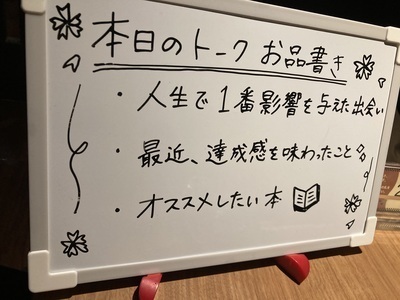 本日のトーク お品書き
・人生で1番影響を与えた出会い
・最近、達成感を味わったこと
・オススメしたい本